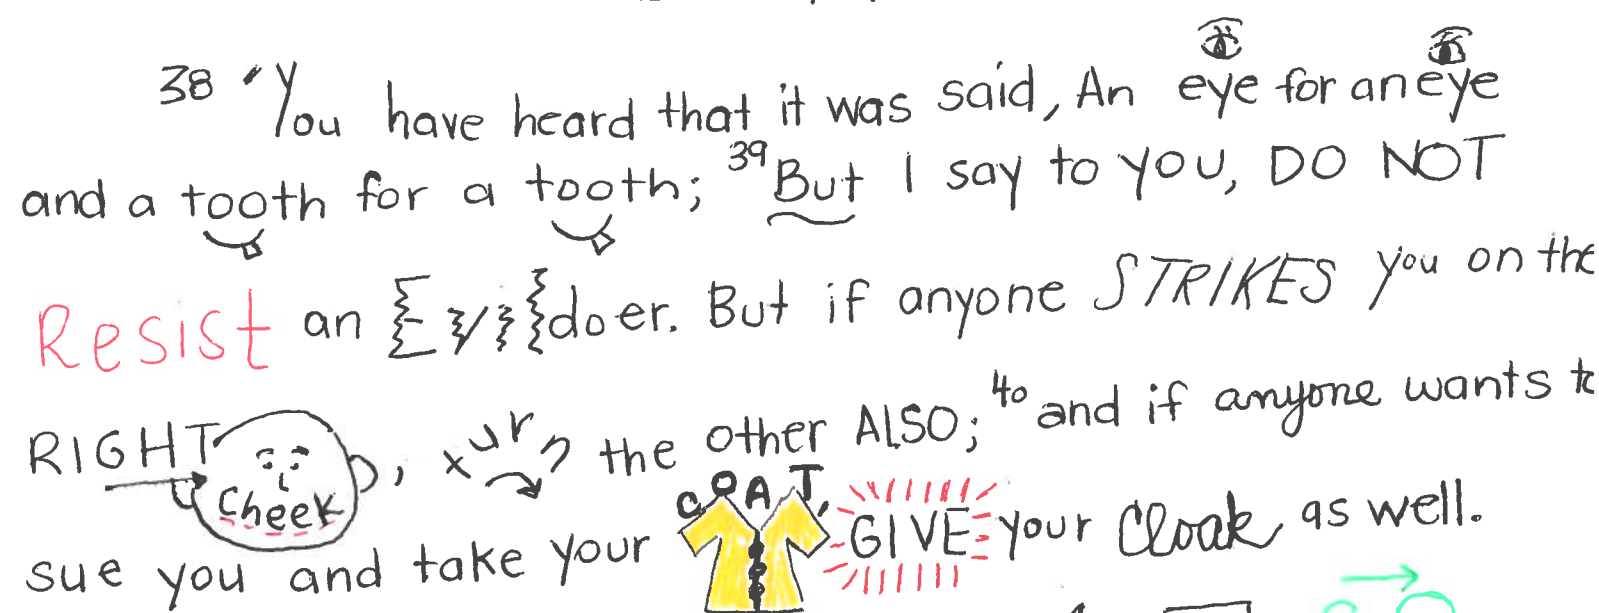 38 "You have heard that it was said, An eye for an eye
and a tooth for a tooth; 39 But I say to you, DO NOT
Resist an Evil doer. But if anyone STRIKES you on the
RIGHT Cheek, turn the other ALSO; 40 and if anyone wants to
sue you and take your COAT, GIVE your Cloak as well.